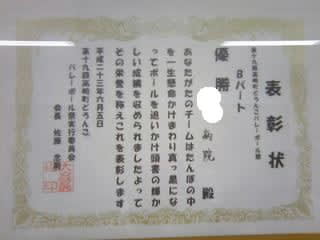 表彰状
第十九回高崎町どろんこバレーボール祭
Bパート
優勝
病院 殿
あなたがたのチームはたんぼの中
を一生懸命かけまわり真っ黒にな
ってボールを追いかけ頭書の輝か
しい成績を収められましたよって
その栄誉を称えこれを表彰します
平成二十三年六月五日
第十九回高崎町どろんこ
バレーボール祭実行委員会
会長 佐藤